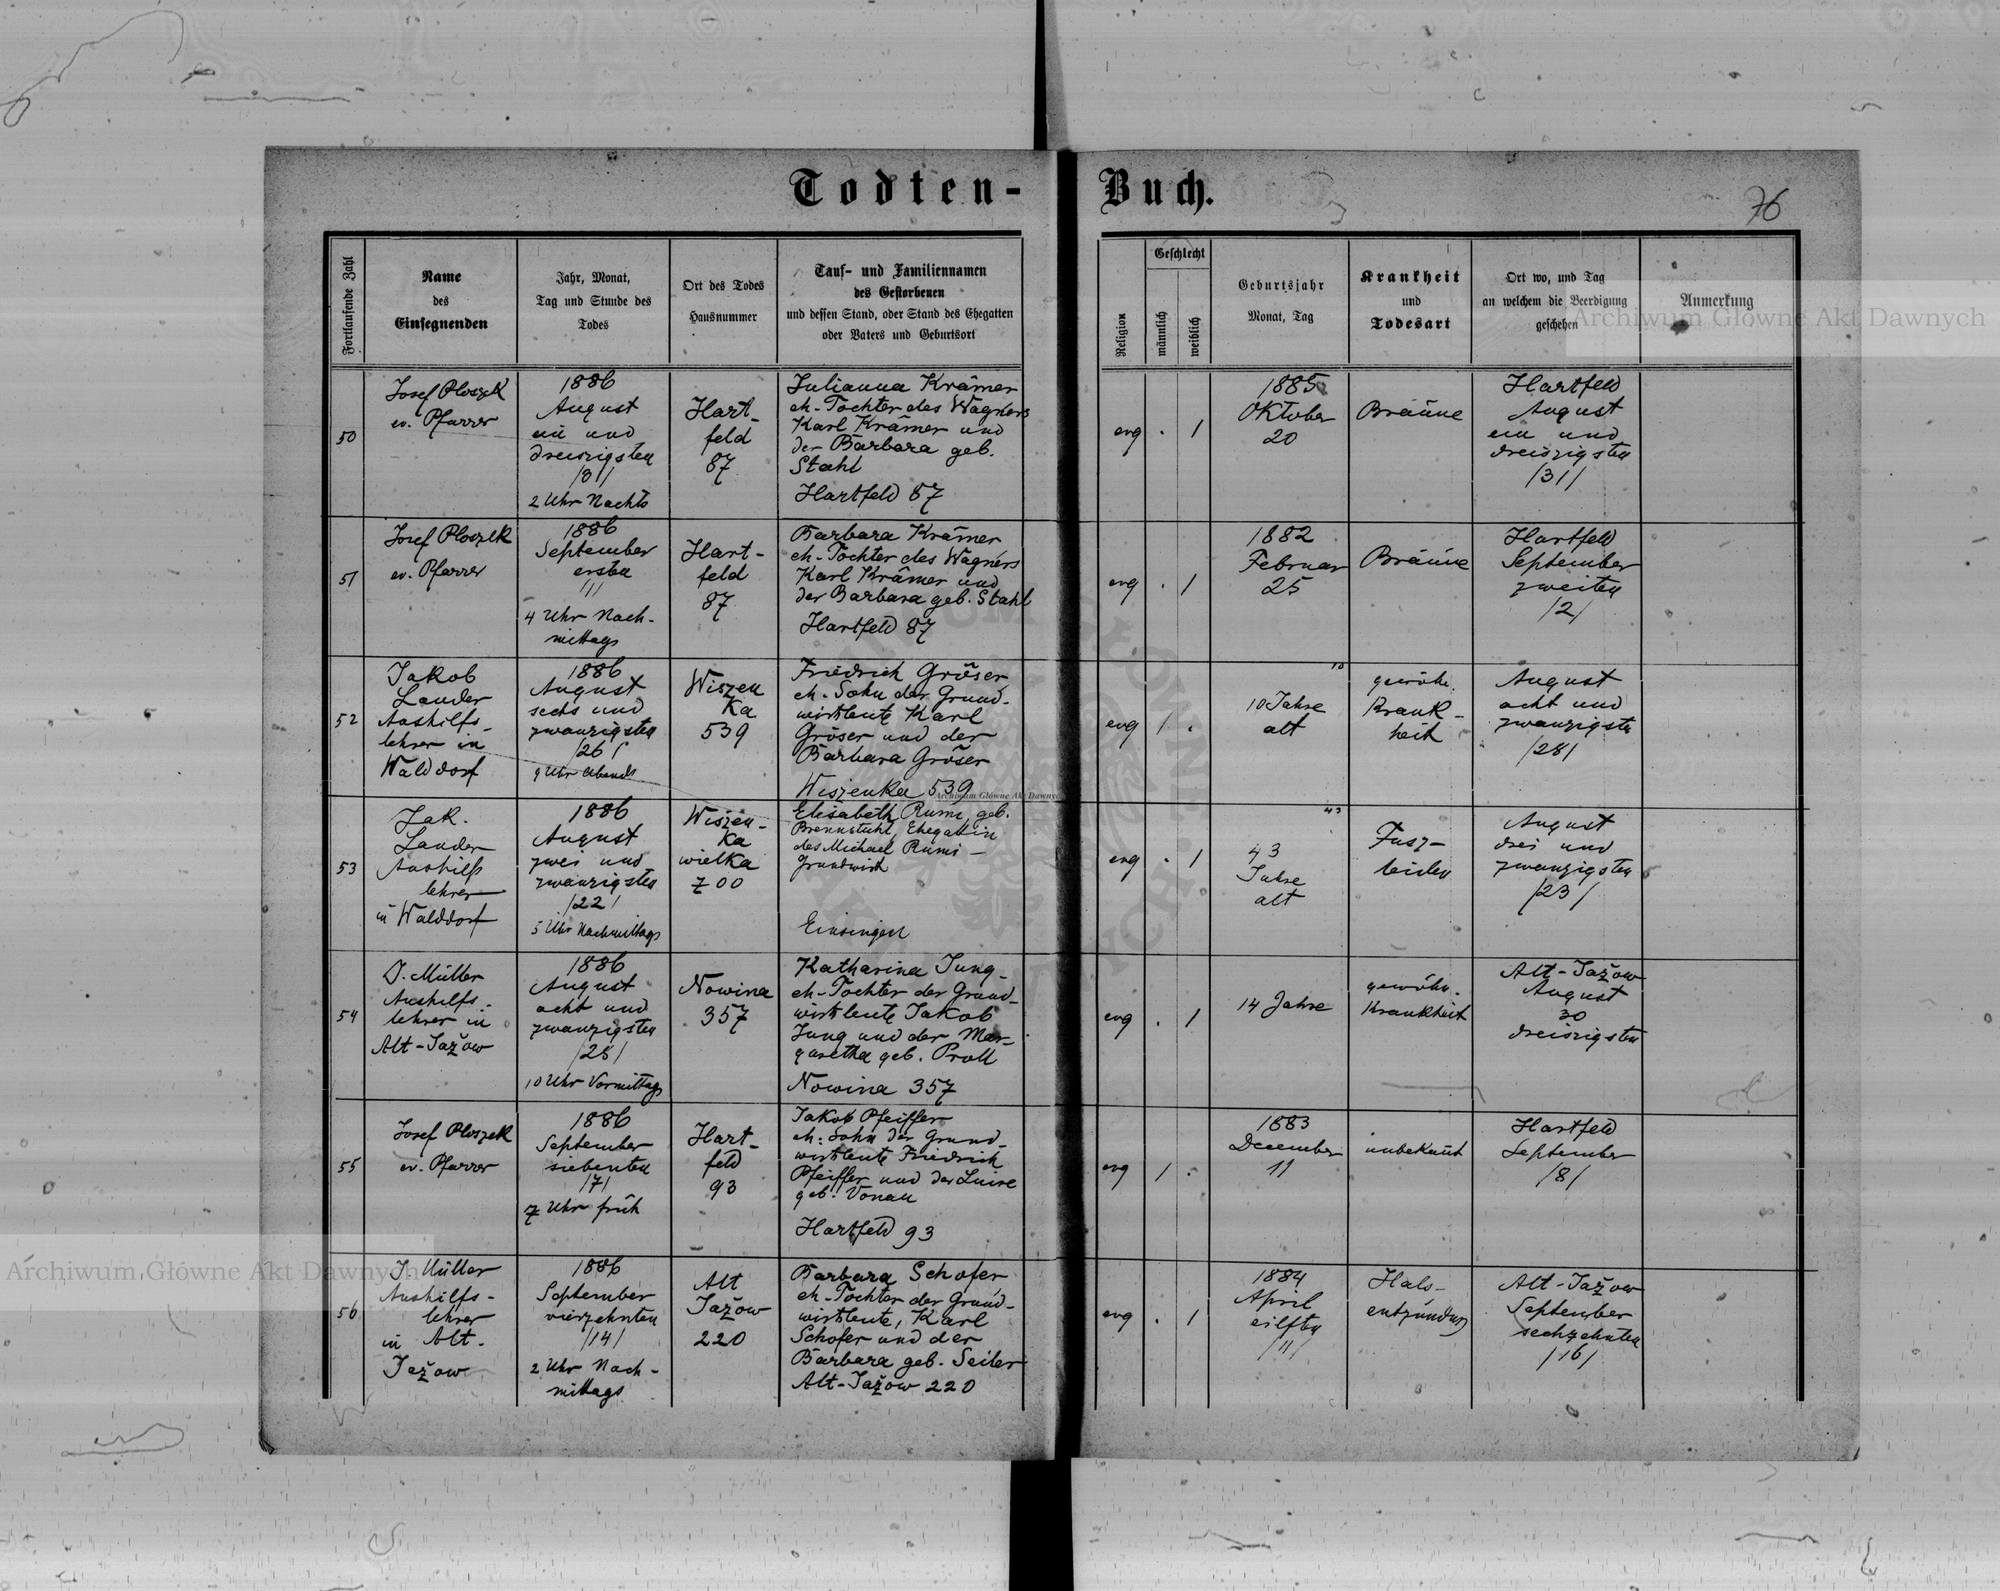 Todten-Buch.
76
Fortlaufende Zahl
Name
des
Einsegnenden
Jahr, Monat,
Tag und Stunde des
Todes
Ort des Todes
Hausnummer
Tauf- und Familiennamen
des Gestorbenen
und dessen Stand, oder Stand des Ehegatten
oder Vaters und Geburtsort
Religion
Geschlecht
männlich
weiblich
Geburtsjahr
Monat, Tag
Krankheit
und
Todesart
Ort wo, und Tag
an welchem die Beerdigung
geschehen
Anmerkung
50
Josef Ploszek
ev. Pfarrer
1886
August
ein und
dreiszigsten
/31/
2 Uhr Nachts
Hart-
feld
87
Julianna Krämer
eh. Tochter des Wagners
Karl Krämer und
der Barbara geb.
Stahl
Hartfeld 87
evg
. 1
1885
Oktober
20
Bräune
Hartfeld
August
ein und
dreiszigsten
/31/
51
Josef Ploszek
ev. Pfarrer
1886
September
ersten
/1/
4 Uhr Nach-
mittags
Hart-
feld
87
Barbara Krämer
eh. Tochter des Wagners
Karl Krämer und
der Barbara geb. Stahl
Hartfeld 87
evg
. 1
1882
Februar
25
Bräune
Hartfeld
September
zweiten
/2/
52
Jakob
Lander
Aushilfs-
lehrer in
Walddorf
1886
August
sechs und
zwanzigsten
/26/
9 Uhr Abends
Wiszen
ka
539
Friedrich Gröser
eh. Sohn der Grund-
wirtleute Karl
Gröser und der
Barbara Gröser
Wiszenka 539
evg
1 .
10
10 Jahre
alt
gewöhn.
Krank-
heit
August
acht und
zwanzigsten
/28/
53
Jak.
Lander
Aushilfs
lehrer
in Walddorf
1886
August
zwei und
zwanzigsten
/22/
5 Uhr Nachmittags
Wiszen-
ka
wielka
700
Elisabeth Rumi, geb.
Brennstuhl, Ehegattin
des Michael Rumi -
Grundwirth
Einsingen
evg
. 1
43
43
Jahre
alt
Fusz-
leiden
August
drei und
zwanzigsten
/23/
54
J. Müller
Aushilfs-
lehrer in
Alt-Jažow
1886
August
acht und
zwanzigsten
/28/
10 Uhr Vormittags
Nowina
357
Katharina Jung-
eh. Tochter der Grund-
wirtleute Jakob
Jung und der Mar-
garetha geb. Proll
Nowina 357
evg
. 1
14 Jahre
gewöhn.
Krankheit
Alt-Jažow
August
30
dreiszigsten
55
Josef Ploszek
ev. Pfarrer
1886
September
siebenten
/7/
7 Uhr früh
Hart-
feld
93
Jakob Pfeiffer
eh. Sohn der Grund-
wirtleute Friedrich
Pfeiffer und der Luise
geb. Vonau
Hartfeld 93
evg
1 .
1883
December
11
unbekannt
Hartfeld
September
/8/
56
J. Müller
Aushilfs-
lehrer
in Alt-
Jažow
1886
September
vierzehnten
/14/
2 Uhr Nach-
mittags
Alt
Jažow
220
Barbara Schofer
eh. Tochter der Grund-
wirtleute, Karl
Schofer und der
Barbara geb. Seiler
Alt-Jažow 220
evg
. 1
1884
April
eilften
/11/
Hals-
entzündung
Alt-Jažow
September
sechzehnten
/16/
Archiwum Główne Akt Dawnych
Archiwum Główne Akt Dawnych
Archiwum Główne Akt Dawnych